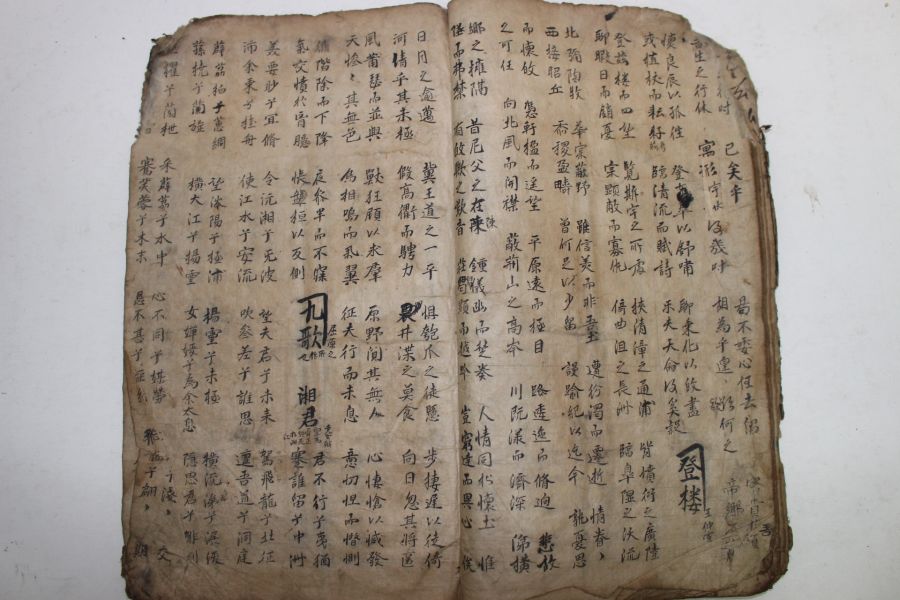 已矣乎 曷不委心任去留
吾生之行休 寓形宇內復幾時 胡為乎遑 欲何之
懷良辰以孤往 登東皐以舒嘯 聊乘化以歸盡
或植杖而耘耔 臨清流而賦詩 樂夫天命復奚疑 登楼 王仲宣
登茲樓而四望 覽斯宇之所處 挟清漳之通浦 背墳衍之廣陸
聊暇日而銷憂 宗顯敞而寡仇 倚曲沮之長洲 臨皐隰之沃流
北彌陶牧 華實蔽野 雖信美而非吾土 遭紛濁而遷逝 情眷〻
西接昭丘 黍稷盈疇 曾何足以少留 謾踰紀以迄今 孰憂思
而懷攸 憑軒檻而遙望 平原遠而極目 路逶迤而脩迥 悲攸
之可任 向北風而開襟 蔽荊山之高岑 川既漾而濟深 涕橫
鄉之擁隔 昔尼父之在陳 鍾儀幽而楚奏 人情同於懷土 惟
墜而弗禁 有攸歟之歎音 莊舄顯而越吟 豈窮達而異心 俟
日月之逾邁 冀王道之一平 惧匏瓜之徒懸 步棲遲以徒倚
河清乎其未極 假高衢而騁力 畏井渫之莫食 向日忽其將匿
風蕭瑟而並興 獸狂顧以求羣 原野闃其無人 心悽愴以感發
天慘〻其無色 鳥相鳴而舉翼 征夫行而未息 意忉怛而憯惻
循階除而下降 夜參半而不寐 九歌 屈原之所作也 湘君 君不行兮夷猶
氣交憤於胷臆 悵盤桓以反側 蹇誰留兮中洲
美要眇兮宜脩 令沅湘兮无波 望夫君兮未来 駕飛龍兮北征
沛余乘兮桂舟 使江水兮安流 吹參差兮誰思 邅吾道兮洞庭
薜荔柏兮蕙綢 望涔陽兮極浦 揚靈兮未極 橫流涕兮潺湲
蓀橈兮蘭旌 橫大江兮揚靈 女嬋媛兮為余太息 隱思君兮悱側
櫂兮蘭枻 采薜荔兮水中 心不同兮媒勞 交
搴芙蓉兮木末 恩不甚兮 飛龍兮翩〻 期